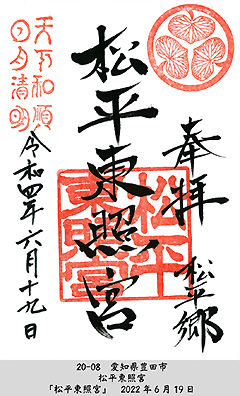 奉拝
松平郷
松平東照宮
松平
東照宮
天下和順
日月清明
令和四年六月十九日
20-08 愛知県豊田市
松平東照宮
「松平東照宮」 2022年6月19日